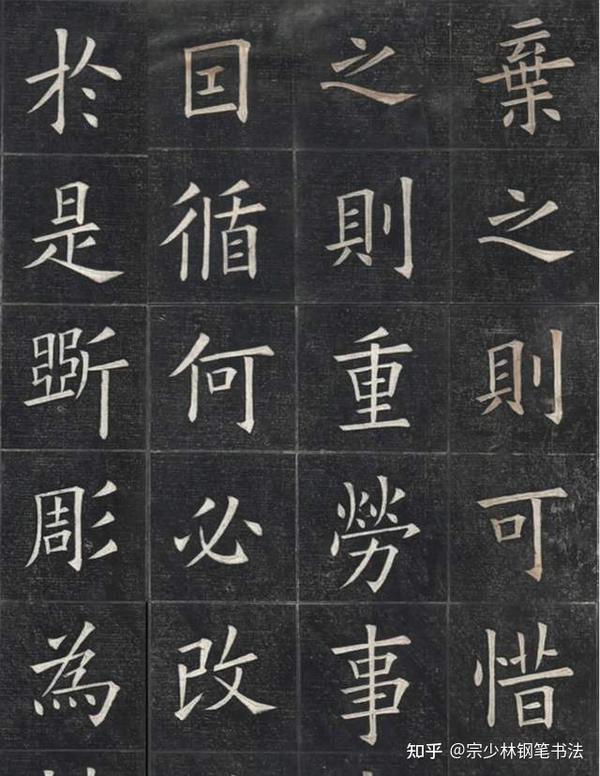 棄之則可惜
之則重勞事
囙循何必改
於是斲彫為
知乎 @宗少林钢笔书法